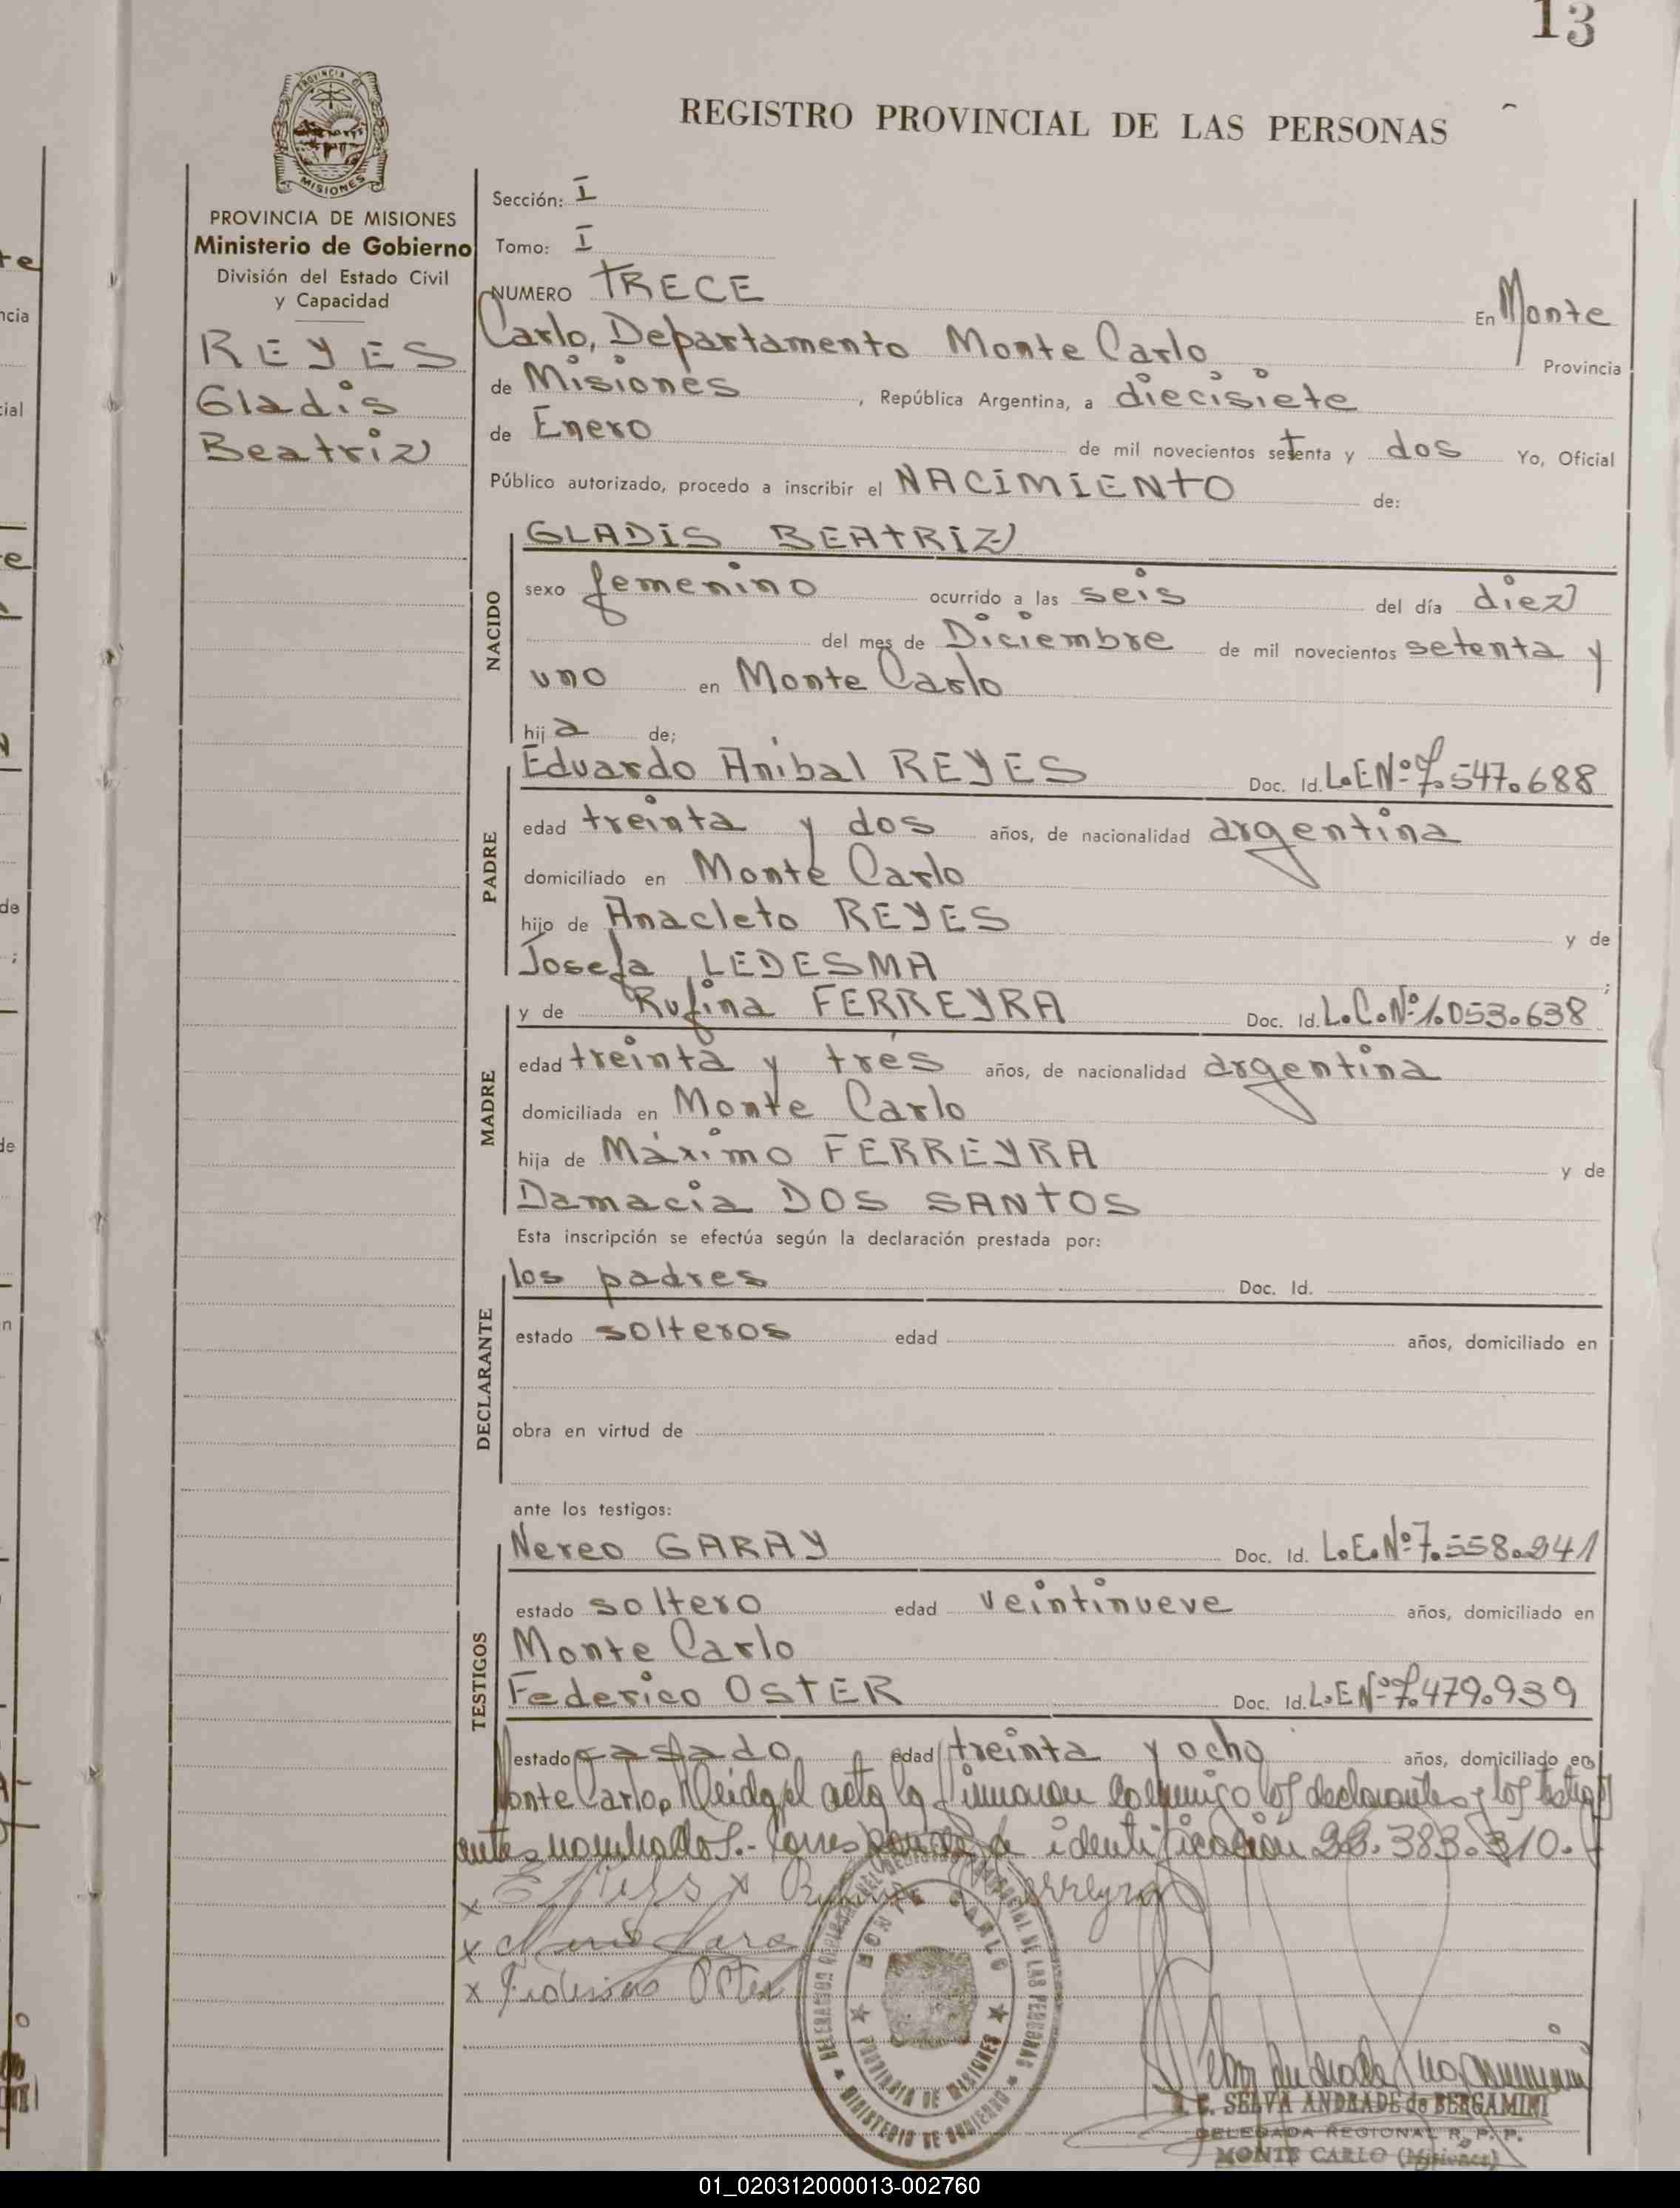 13
REGISTRO PROVINCIAL DE LAS PERSONAS
PROVINCIA DE MISIONES
Ministerio de Gobierno
División del Estado Civil
y Capacidad
REYES
Gladis
Beatriz
Sección: I
Tomo: I
NUMERO TRECE En Monte
Carlo, Departamento Monte Carlo Provincia
de Misiones, República Argentina, a diecisiete
de Enero de mil novecientos setenta y dos Yo, Oficial
Público autorizado, procedo a inscribir el NACIMIENTO de:
NACIDO
GLADIS BEATRIZ
sexo femenino ocurrido a las seis del día diez
del mes de Diciembre de mil novecientos setenta y
uno en Monte Carlo
hija de;
PADRE
Eduardo Anibal REYES Doc. Id. L.E Nº 7.547.688
edad treinta y dos años, de nacionalidad argentina
domiciliado en Monte Carlo
hijo de Anacleto REYES y de
Josefa LEDESMA ;
MADRE
y de Rufina FERREYRA Doc. Id. L.C. Nº 1.053.638
edad treinta y tres años, de nacionalidad argentina
domiciliada en Monte Carlo
hija de Máximo FERREYRA y de
Damacia DOS SANTOS
Esta inscripción se efectúa según la declaración prestada por:
DECLARANTE
los padres Doc. Id.
estado solteros edad años, domiciliado en
obra en virtud de
ante los testigos:
TESTIGOS
Nereo GARAY Doc. Id. L.E. Nº 7.558.241
estado soltero edad veintinueve años, domiciliado en
Monte Carlo
Federico OSTER Doc. Id. L.E Nº 7.479.939
estado casado edad treinta y ocho años, domiciliado en
Monte Carlo. Leida el acta la firmaron conmigo los declarantes y los testigos
antes nombrados.- Corresponde a identificación 22.383.310.-
x x Ferreyra
x
x Federico Oster
MONTE CARLO
PROVINCIA DE MISIONES
MINISTERIO DE GOBIERNO
C. SELVA ANDRADE de BERGAMINI
DELEGADA REGIONAL R. P. P.
MONTE CARLO (Misiones)
01_020312000013-002760